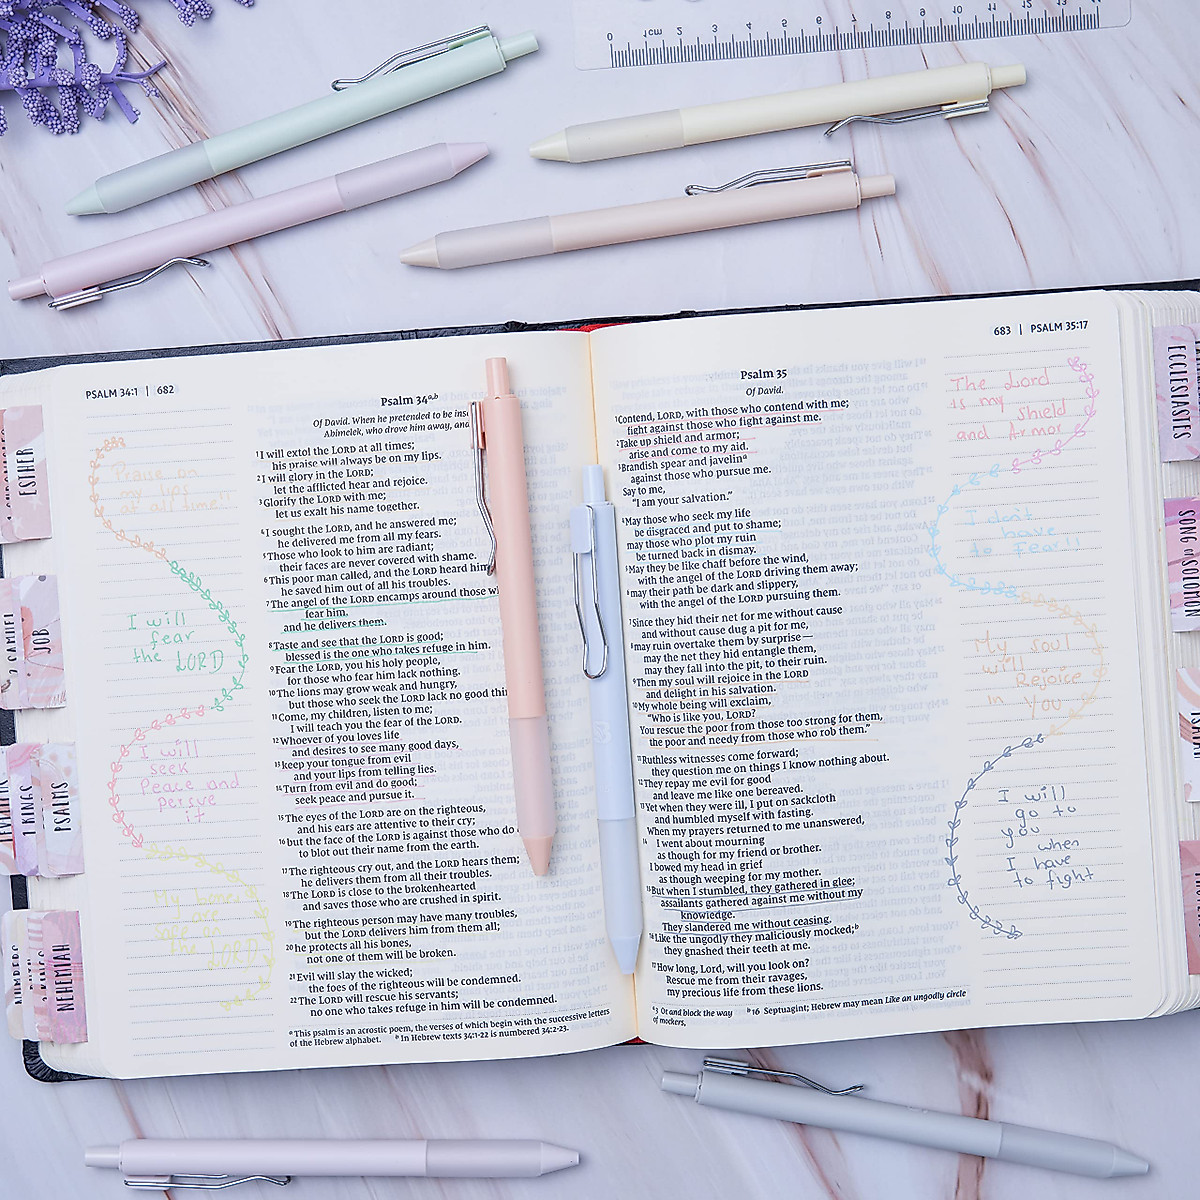 0 1cm 2 3 4 5 6 7 8 9 10 11 12 13 14
PSALM 34:1 | 682
Praise on
my lips
at all time!!
I will
fear
the LORD
I will
seek
Peace and
persue
it
My bones
are
safe on
the LORD
Psalm 34a,b
Of David. When he pretended to be
Abimelek, who drove him away, and
1 I will extol the LORD at all times;
his praise will always be on my lips.
2 I will glory in the LORD;
let the afflicted hear and rejoice.
3 Glorify the LORD with me;
let us exalt his name together.
4 I sought the LORD, and he answered me;
he delivered me from all my fears.
5 Those who look to him are radiant;
their faces are never covered with shame.
6 This poor man called, and the LORD heard him
he saved him out of all his troubles.
7 The angel of the LORD encamps around those
fear him,
and he delivers them.
8 Taste and see that the LORD is good;
blessed is the one who takes refuge in him.
9 Fear the LORD, you his holy people,
for those who fear him lack nothing.
10 The lions may grow weak and hungry,
but those who seek the LORD lack no good
11 Come, my children, listen to me;
I will teach you the fear of the LORD.
12 Whoever of you loves life
and desires to see many good days,
13 keep your tongue from evil
and your lips from telling lies.
14 Turn from evil and do good;
seek peace and pursue it.
15 The eyes of the LORD are on the righteous,
and his ears are attentive to their cry;
16 but the face of the LORD is against those who do
to blot out their name from the earth.
17 The righteous cry out, and the LORD hears them;
he delivers them from all their troubles.
18 The LORD is close to the brokenhearted
and saves those who are crushed in spirit.
19 The righteous person may have many troubles,
but the LORD delivers him from them all;
20 he protects all his bones,
not one of them will be broken.
21 Evil will slay the wicked;
the foes of the righteous will be condemned.
22 The LORD will rescue his servants;
no one who takes refuge in him will be condemned.
a This psalm is an acrostic poem, the verses of which begin with the successive letters
of the Hebrew alphabet. b In Hebrew texts 34:1-22 is numbered 34:2-23.
683 | PSALM 35:17
Psalm 35
Of David.
1 Contend, LORD, with those who contend with me;
fight against those who fight against me.
2 Take up shield and armor;
arise and come to my aid.
3 Brandish spear and javelina
against those who pursue me.
Say to me,
"I am your salvation."
4 May those who seek my life
be disgraced and put to shame;
may those who plot my ruin
be turned back in dismay.
5 May they be like chaff before the wind,
with the angel of the LORD driving them away;
6 may their path be dark and slippery,
with the angel of the LORD pursuing them.
7 Since they hid their net for me without cause
and without cause dug a pit for me,
8 may ruin overtake them by surprise—
may the net they hid entangle them,
may they fall into the pit, to their ruin.
9 Then my soul will rejoice in the LORD
and delight in his salvation.
10 My whole being will exclaim,
"Who is like you, LORD?
You rescue the poor from those too strong for them,
the poor and needy from those who rob them."
11 Ruthless witnesses come forward;
they question me on things I know nothing about.
12 They repay me evil for good
and leave me like one bereaved.
13 Yet when they were ill, I put on sackcloth
and humbled myself with fasting.
When my prayers returned to me unanswered,
14 I went about mourning
as though for my friend or brother.
I bowed my head in grief
as though weeping for my mother.
15 But when I stumbled, they gathered in glee;
assailants gathered against me without my
knowledge.
They slandered me without ceasing.
16 Like the ungodly they maliciously mocked;b
they gnashed their teeth at me.
17 How long, Lord, will you look on?
Rescue me from their ravages,
my precious life from these lions.
a 3 Or and block the way b 16 Septuagint; Hebrew may mean Like an ungodly circle
of mockers,
The Lord
is my
Shield
and Armor
I don't
have
to Fear!!
My soul
will
Rejoice
in You
I will
go to
you
when
I have
to fight
ESTHER
2 SAMUEL
JOB
1 KINGS
PSALMS
NUMBERS
2 KINGS
NEHEMIAH
ECCLESIASTES
SONG OF SOLOMON